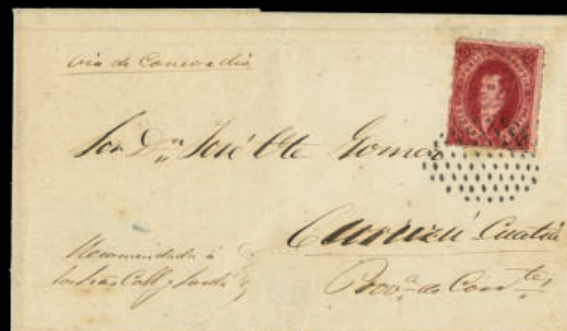 via de Concordia
Sor Dn José Ote Gomez
Curuzú Cuatiá
Provª de Corrtes
Recomendada á
los Sres Coll y